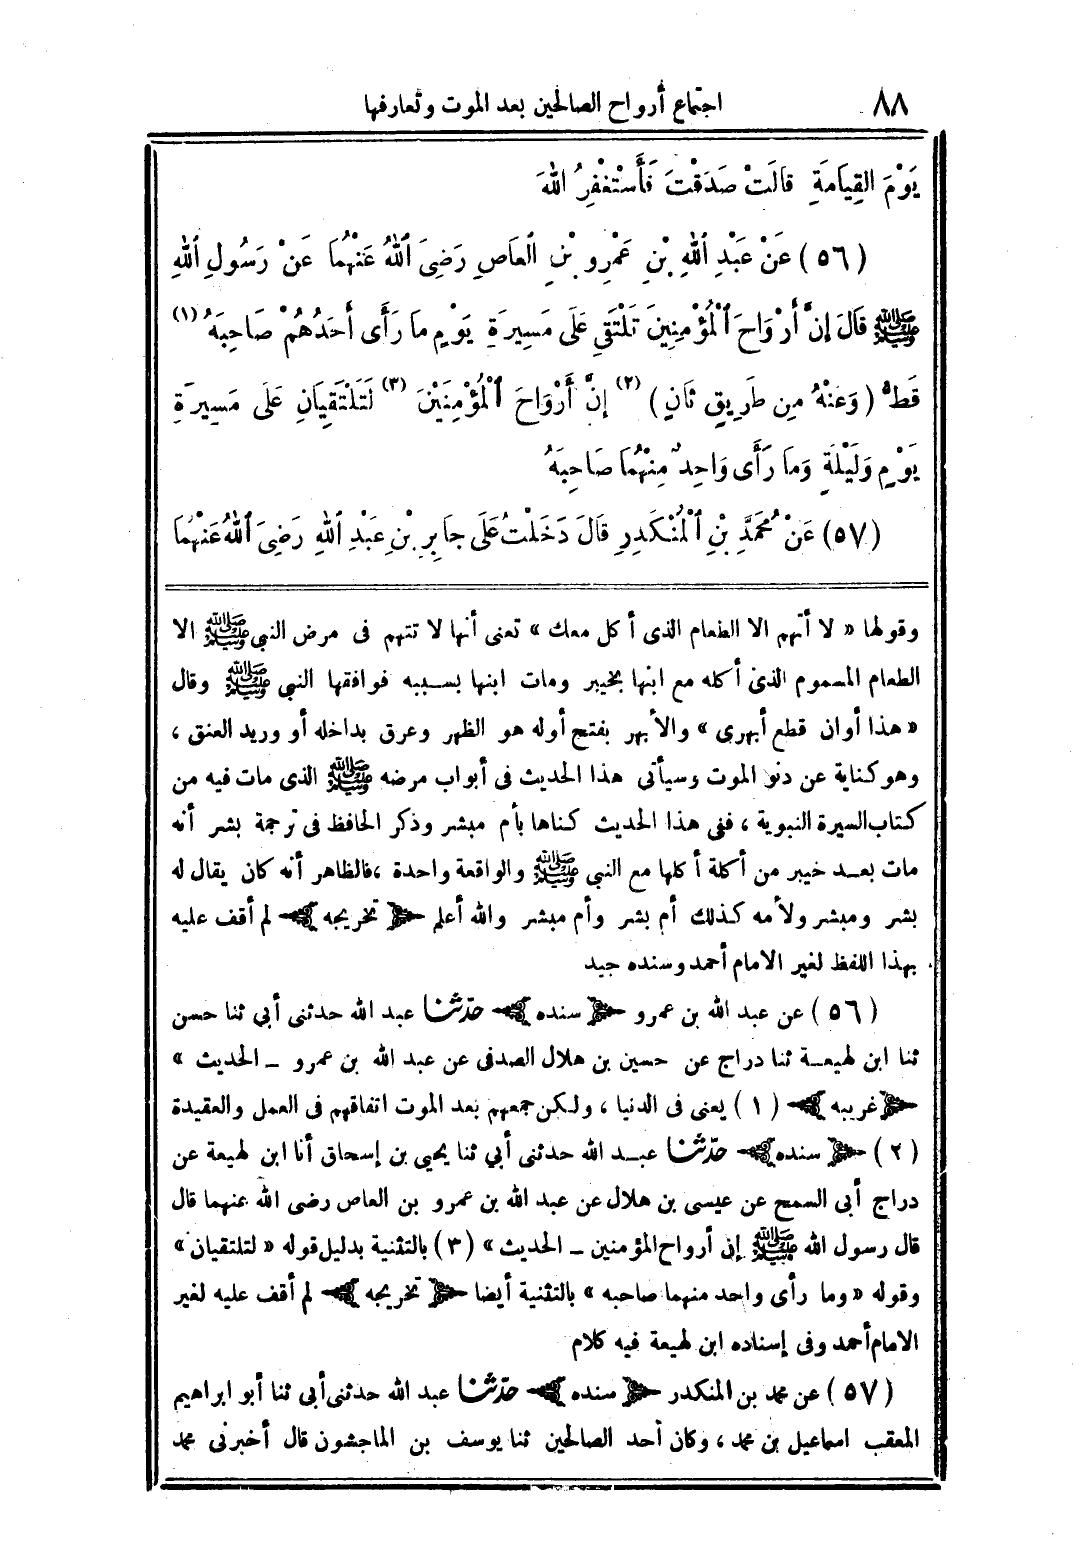 ٨٨ اجتماع أرواح الصالحين بعد الموت وتعارفها
يَوْمَ القِيَامَةِ قَالَتْ صَدَقْتَ فَأَسْتَغْفِرُ اللهَ
(٥٦) عَنْ عَبْدِ اللهِ بْنِ عَمْرِو بْنِ العَاصِ رَضِىَ اللهُ عَنْهُمَا عَنْ رَسُولِ اللهِ
ﷺ قَالَ إِنَّ أَرْوَاحَ الْمُؤْمِنِينَ تَلْتَقِى عَلَى مَسِيرَةِ يَوْمٍ مَا رَأَى أَحَدُهُمْ صَاحِبَهُ (١)
قَطُّ (وَعَنْهُ مِن طَرِيقٍ ثَانٍ) (٢) إِنَّ أَرْوَاحَ الْمُؤْمِنَيْنِ (٣) لَتَلْتَقِيَانِ عَلَى مَسِيرَةِ
يَوْمٍ وَلَيْلَةٍ وَمَا رَأَى وَاحِدٌ مِنْهُمَا صَاحِبَهُ
(٥٧) عَنْ مُحَمَّدِ بْنِ الْمُنْكَدِرِ قَالَ دَخَلْتُ عَلَى جَابِرِ بْنِ عَبْدِ اللهِ رَضِىَ اللهُ عَنْهُمَا
وقولها « لا أتهم الا الطعام الذى أكل معك » تعنى أنها لا تتهم فى مرض النبى ﷺ الا
الطعام المسموم الذى أكله مع ابنها بخيبر ومات ابنها بسببه فوافقها النبى ﷺ وقال
« هذا أوان قطع أبهرى » والأبهر بفتح أوله هو الظهر وعرق بداخله أو وريد العنق ،
وهو كناية عن دنو الموت وسيأتى هذا الحديث فى أبواب مرضه ﷺ الذى مات فيه من
كتاب السيرة النبوية ، ففى هذا الحديث كناها بأم مبشر وذكر الحافظ فى ترجمة بشر أنه
مات بعد خيبر من أكلة أكلها مع النبى ﷺ والواقعة واحدة ، فالظاهر أنه كان يقال له
بشر ومبشر ولأمه كذلك أم بشر وأم مبشر والله أعلم ﴿ تخريجه ﴾ لم أقف عليه
بهذا اللفظ لغير الامام أحمد وسنده جيد
(٥٦) عن عبد الله بن عمرو ﴿ سنده ﴾ حدّثنا عبد الله حدثنى أبي ثنا حسن
ثنا ابن لهيعة ثنا دراج عن حسين بن هلال الصدفى عن عبد الله بن عمرو ــ الحديث »
﴿ غريبه ﴾ (١) يعنى فى الدنيا ، ولكن جمعهم بعد الموت اتفاقهم فى العمل والعقيدة
(٢) ﴿ سنده ﴾ حدّثنا عبد الله حدثنى أبي ثنا يحيى بن إسحاق أنا ابن لهيعة عن
دراج أبى السمح عن عيسى بن هلال عن عبد الله بن عمرو بن العاص رضى الله عنهما قال
قال رسول الله ﷺ إن أرواح المؤمنين ــ الحديث » (٣) بالتثنية بدليل قوله « لتلتقيان »
وقوله « وما رأى واحد منهما صاحبه » بالتثنية أيضا ﴿ تخريجه ﴾ لم أقف عليه لغير
الامام أحمد وفى إسناده ابن لهيعة فيه كلام
(٥٧) عن محمد بن المنكدر ﴿ سنده ﴾ حدّثنا عبد الله حدثنى أبى ثنا أبو ابراهيم
المعقب اسماعيل بن محمد ، وكان أحد الصالحين ثنا يوسف بن الماجشون قال أخبرنى محمد